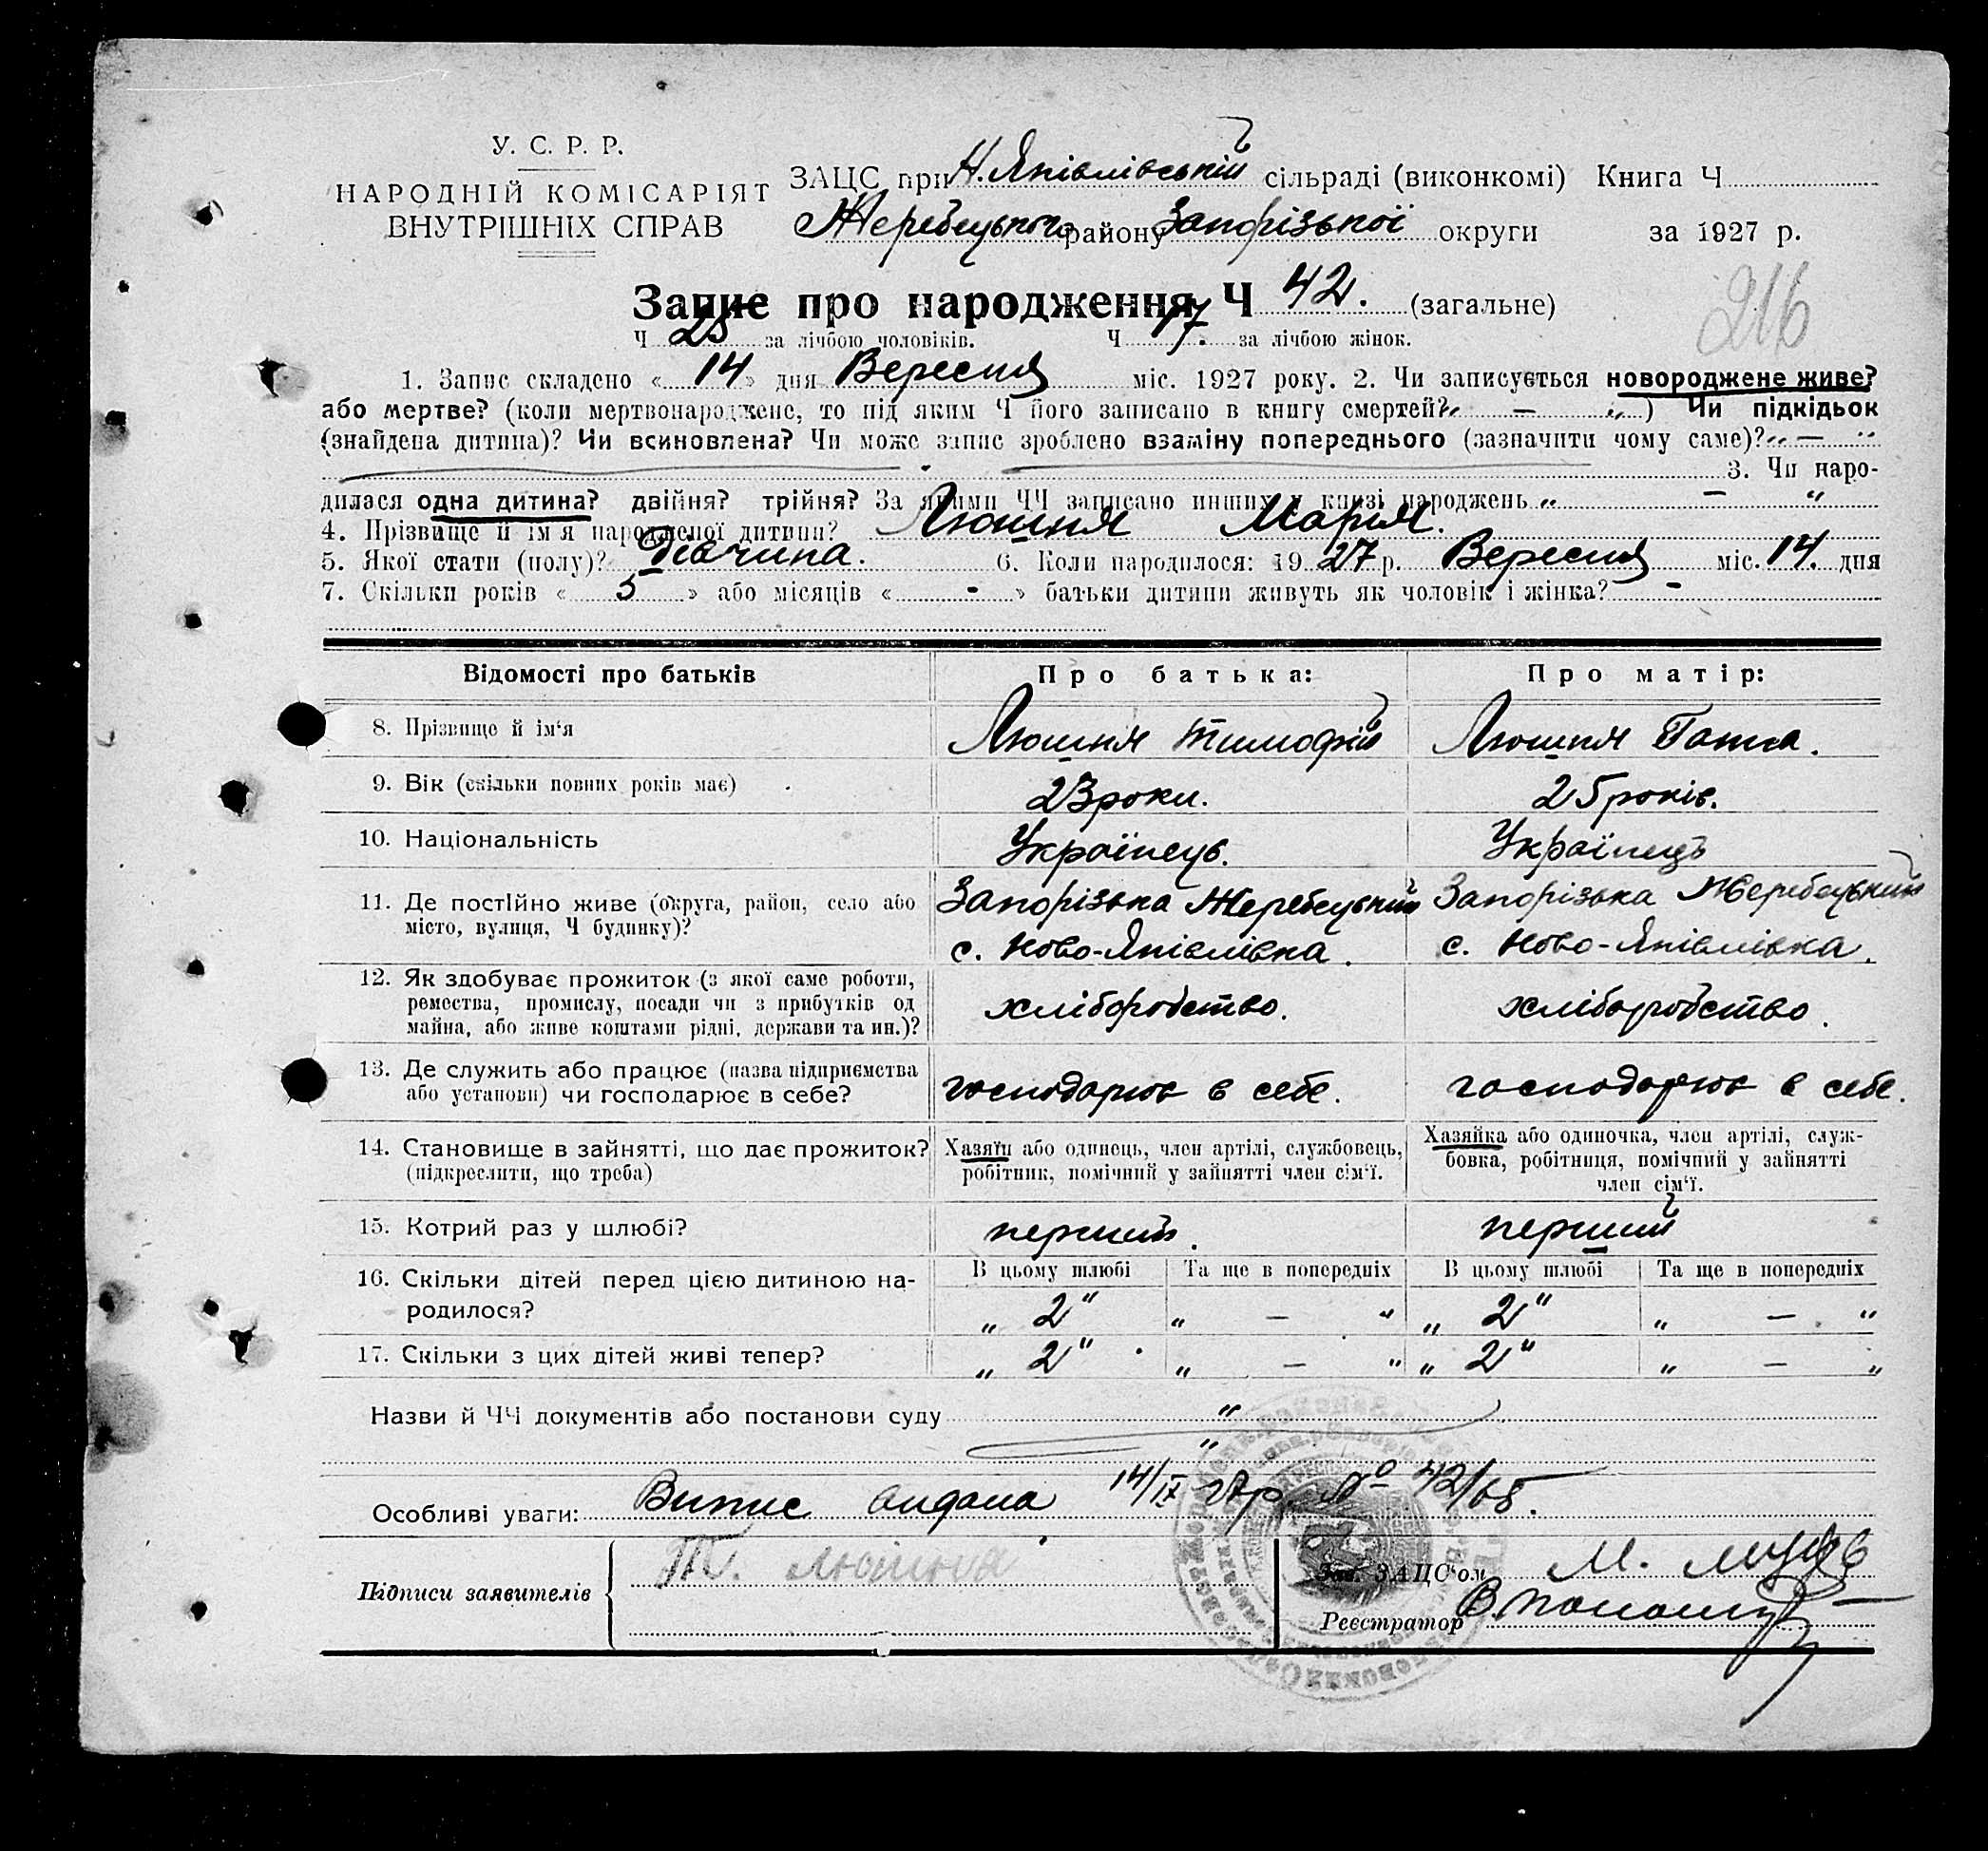 У. С. Р. Р.
НАРОДНІЙ КОМІСАРІЯТ
ВНУТРІШНІХ СПРАВ
ЗАЦС при Н. Янівлівській сільраді (виконкомі) Книга Ч
Жеребецького району Запорізької округи за 1927 р.
216
Запис про народження Ч 42. (загальне)
Ч 25 за лічбою чоловіків. Ч 17. за лічбою жінок.
1. Запис складено « 14 » дня Вересня міс. 1927 року. 2. Чи записується новороджене живе?
або мертве? (коли мертвонароджене, то під яким Ч його записано в книгу смертей? „ — „ ) Чи підкідьок
(знайдена дитина)? Чи всиновлена? Чи може запис зроблено взаміну попереднього (зазначити чому саме)? „ — "
3. Чи наро-
дилася одна дитина? двійня? трійня? За якими ЧЧ записано инших у книзі народжень „ — "
4. Прізвище й ім'я народженої дитини? Люшня Марія.
5. Якої стати (полу)? Дівчина. 6. Коли народилося: 1927 р. Вересня міс. 14. дня
7. Скільки років « 5 » або місяців « - » батьки дитини живуть як чоловік і жінка? -
Відомості про батьків Про батька: Про матір:
8. Прізвище й ім'я Люшня Тимофій Люшня Ганна.
9. Вік (скільки повних років має) 23 роки. 25 років.
10. Національність Українець. Українець
11. Де постійно живе (округа, район, село або Запорізька Жеребецький Запорізька Жеребецький
місто, вулиця, Ч будинку)? с. Ново-Янівлівка. с. Ново-Янівлівка.
12. Як здобуває прожиток (з якої саме роботи,
ремества, промислу, посади чи з прибутків од хліборобство. хліборобство.
майна, або живе коштами рідні, держави та ин.)?
13. Де служить або працює (назва підприємства
або установи) чи господарює в себе? господарює в себе. господарює в себе.
14. Становище в зайнятті, що дає прожиток? Хазяїн або одинець, член артілі, службовець, Хазяйка або одиночка, член артілі, служ-
(підкреслити, що треба) робітник, помічний у зайнятті член сім'ї. бовка, робітниця, помічний у зайнятті
член сім'ї.
15. Котрий раз у шлюбі? перший. перший
16. Скільки дітей перед цією дитиною на- В цьому шлюбі Та ще в попередніх В цьому шлюбі Та ще в попередніх
родилося? „ 2 " „ — " „ 2 " „ — "
17. Скільки з цих дітей живі тепер? „ 2 " „ — " „ 2 " „ — "
Назви й ЧЧ документів або постанови суду "
"
Особливі уваги: Випис видана 14/IX 27 р. № 42/68.
Підписи заявителів Т. Люшня
Зав. ЗАЦС'ом М.
Реєстратор В.